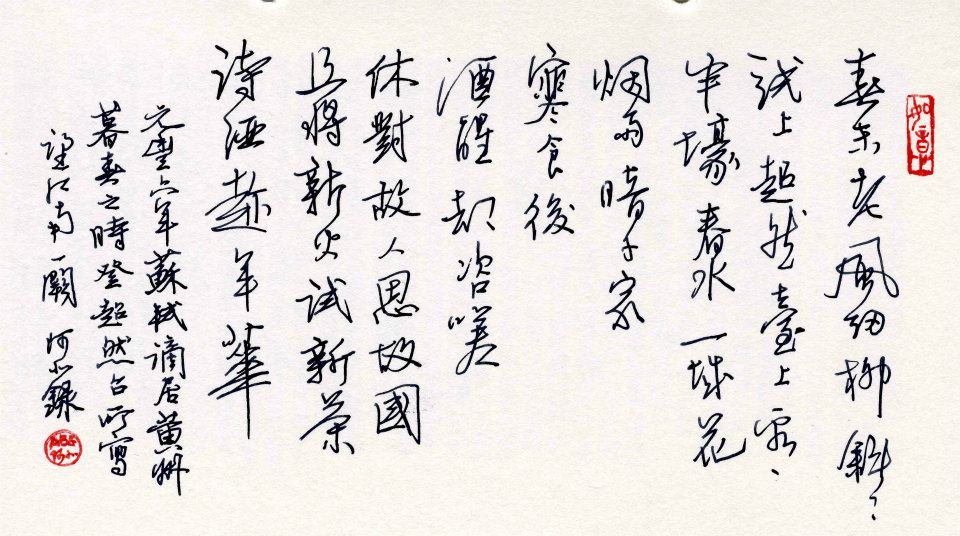 春未老風細柳斜〻
试上超然臺上看、
半壕春水一城花
烟雨暗千家
寒食後
酒醒却咨嗟
休對故人思故國
且將新火試新茶
詩酒趁年華
元豐六年蘇軾謫居黃州
暮春之時登超然台所寫
望江南一闋 錄